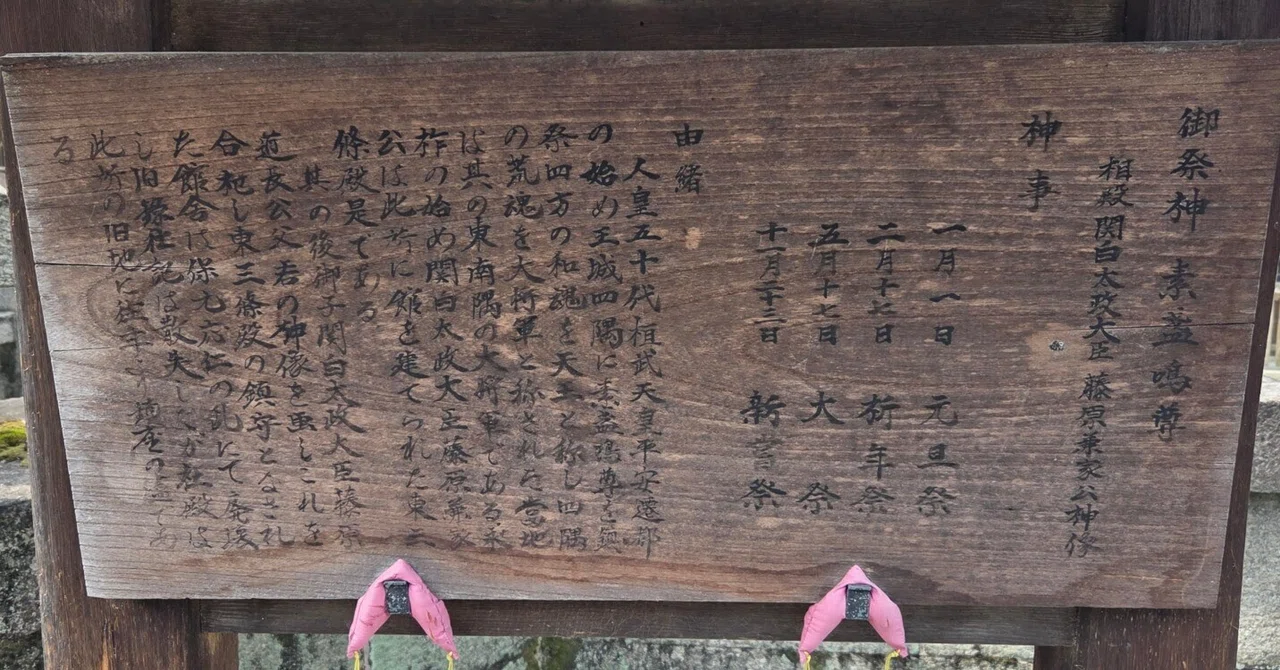 御祭神 素盞鳴尊
相殿関白太政大臣 藤原兼家公神像
神事
一月一日 元旦祭
二月十七日 祈年祭
五月十七日 大祭
十一月二十三日 新嘗祭
由緒
人皇五十代桓武天皇平安遷都
の始め王城四隅に素盞鳴尊を
祭四方の和魂を天王と称し四隅
の荒魂を大将軍と称された当地
は其の東南隅の大将軍である
の始め関白太政大臣藤原兼家
公は此所に館を建てられた東三
條殿是である
其の後御子関白太政大臣藤原
道長公父君の神像を画しこれを
合祀し東三條殿の鎮守となされ
た館舎は応仁の乱にて廃
し旧録社記は散失したが社殿は
此所の旧地に往年
る